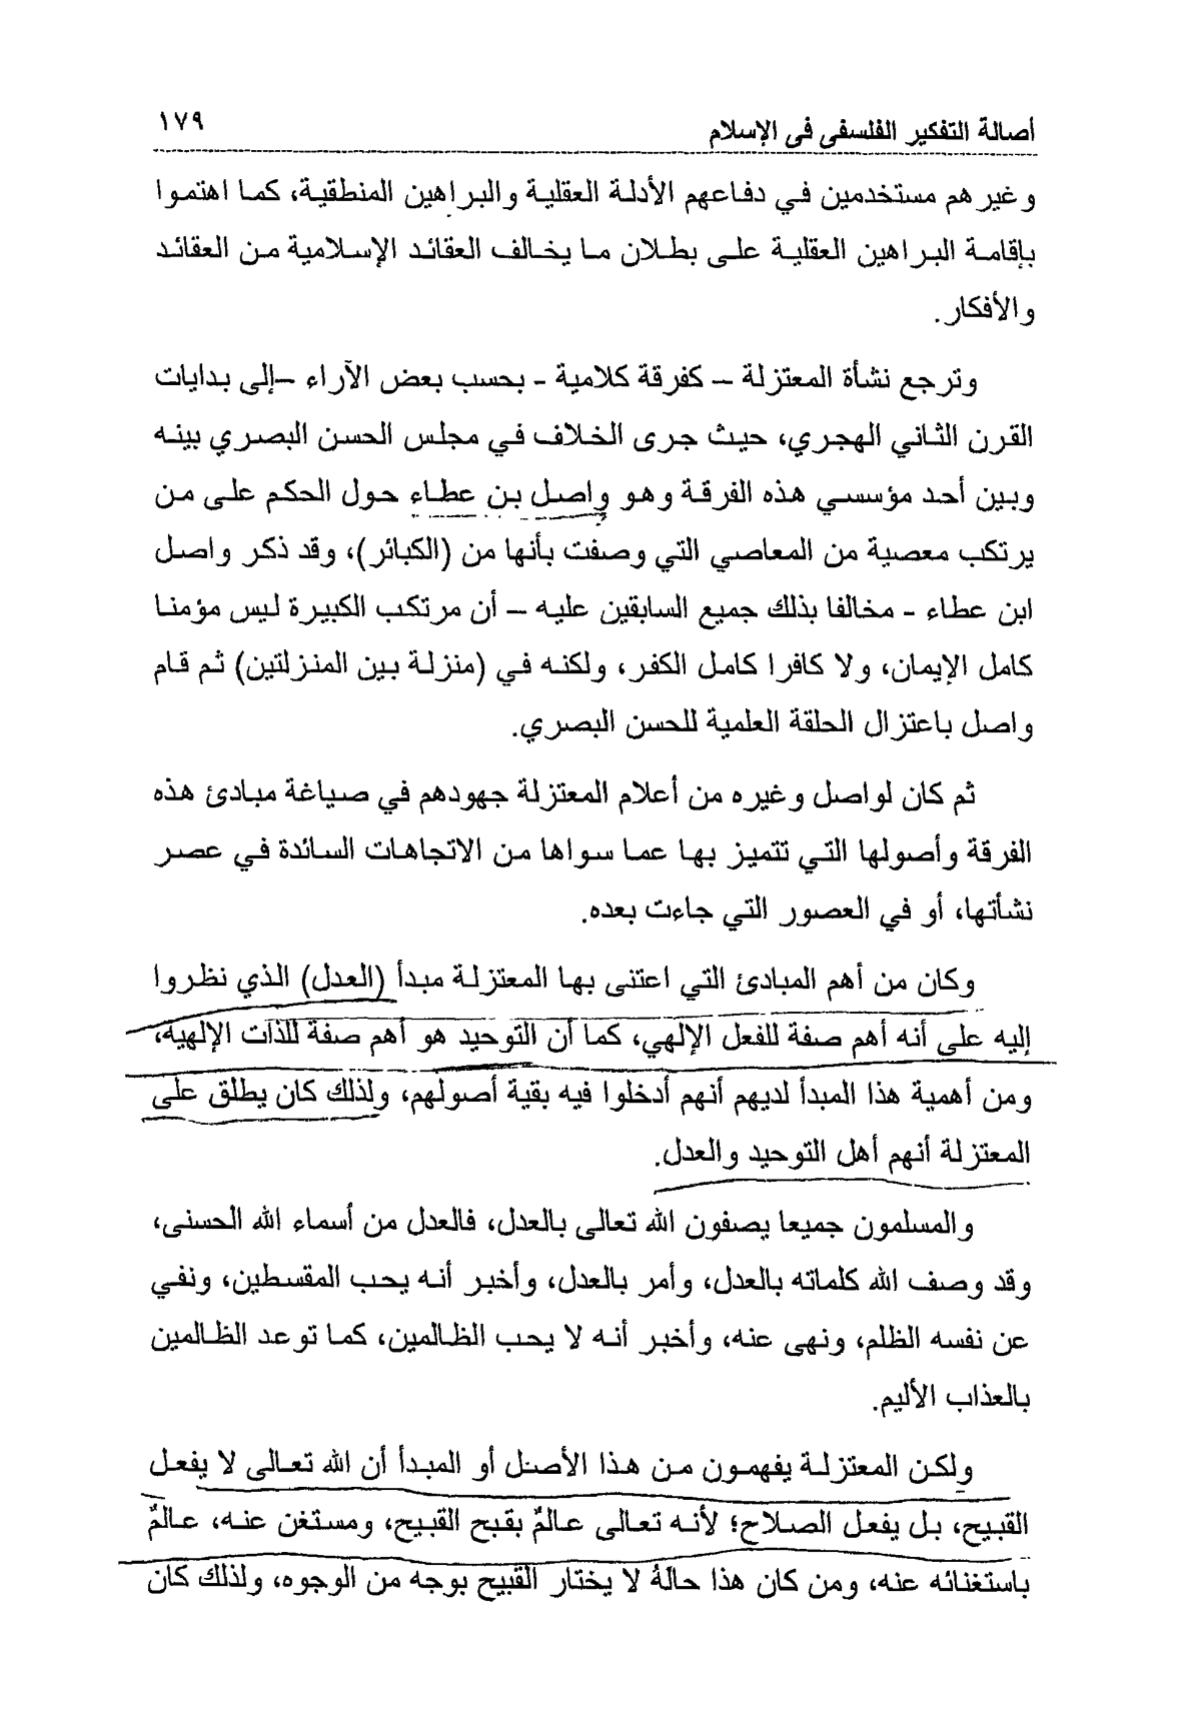 أصالة التفكير الفلسفى فى الإسلام ١٧٩
وغيرهم مستخدمين في دفاعهم الأدلة العقلية والبراهين المنطقية، كما اهتموا
بإقامة البراهين العقلية على بطلان ما يخالف العقائد الإسلامية من العقائد
والأفكار.
وترجع نشأة المعتزلة – كفرقة كلامية - بحسب بعض الآراء –إلى بدايات
القرن الثاني الهجري، حيث جرى الخلاف في مجلس الحسن البصري بينه
وبين أحد مؤسسي هذه الفرقة وهو واصل بن عطاء حول الحكم على من
يرتكب معصية من المعاصي التي وصفت بأنها من (الكبائر)، وقد ذكر واصل
ابن عطاء - مخالفا بذلك جميع السابقين عليه – أن مرتكب الكبيرة ليس مؤمنا
كامل الإيمان، ولا كافرا كامل الكفر، ولكنه في (منزلة بين المنزلتين) ثم قام
واصل باعتزال الحلقة العلمية للحسن البصري.
ثم كان لواصل وغيره من أعلام المعتزلة جهودهم في صياغة مبادئ هذه
الفرقة وأصولها التي تتميز بها عما سواها من الاتجاهات السائدة في عصر
نشأتها، أو في العصور التي جاءت بعده.
وكان من أهم المبادئ التي اعتنى بها المعتزلة مبدأ (العدل) الذي نظروا
إليه على أنه أهم صفة للفعل الإلهي، كما أن التوحيد هو أهم صفة للذات الإلهية،
ومن أهمية هذا المبدأ لديهم أنهم أدخلوا فيه بقية أصولهم، ولذلك كان يطلق على
المعتزلة أنهم أهل التوحيد والعدل.
والمسلمون جميعا يصفون الله تعالى بالعدل، فالعدل من أسماء الله الحسنى،
وقد وصف الله كلماته بالعدل، وأمر بالعدل، وأخبر أنه يحب المقسطين، ونفي
عن نفسه الظلم، ونهى عنه، وأخبر أنه لا يحب الظالمين، كما توعد الظالمين
بالعذاب الأليم.
ولكن المعتزلة يفهمون من هذا الأصل أو المبدأ أن الله تعالى لا يفعل
القبيح، بل يفعل الصلاح؛ لأنه تعالى عالمٌ بقبح القبيح، ومستغن عنه، عالمٌ
باستغنائه عنه، ومن كان هذا حالةُ لا يختار القبيح بوجه من الوجوه، ولذلك كان